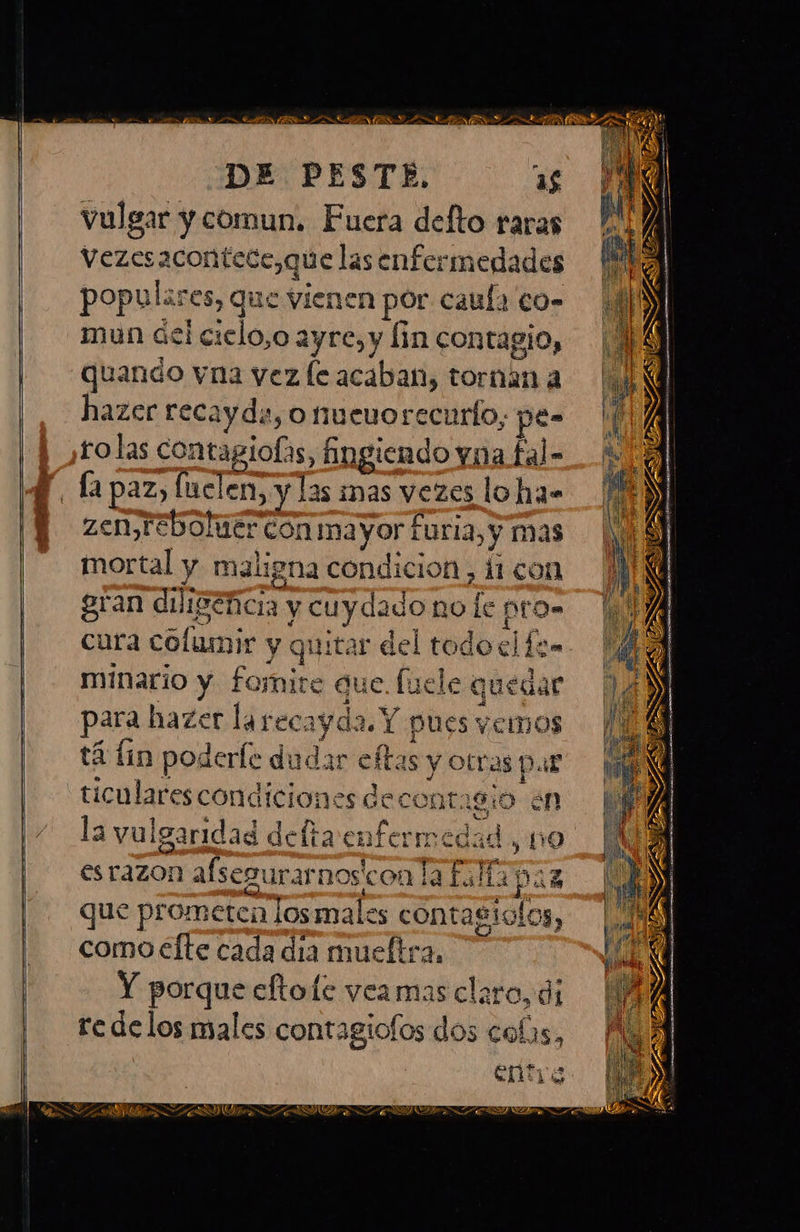 DE PESTE. 15
vulgar y comun. Fuera deſto raras
vezes acontece, que las enfermedades
populares, que vienen por cauſa co-
mun del cielo, o ayre, y ſin contagio,
quando vna vez ſe acaban, tornan a
hazer recayda, o nueuo recurſo, pe-
ro las contagioſas, fingiendo vna fal-
ſa paz, ſuelen, y las mas vezes lo ha-
zen, reboluer con mayor furia, y mas
mortal y maligna condicion, ſi con
gran diligencia y cuydado no ſe pro-
cura cõſumir y quitar del todo el ſe-
minario y fomite que ſuele quedar
para hazer la recayda. Y pues vemos
tã ſin poderſe dudar eſtas y otras par
ticulares condiciones de contagio en
la vulgaridad deſta enfermedad, no
es razon aſsegurarnos con la falſa paz
que prometen los males contagioſos,
como eſte cada dia mueſtra.
Y porque eſto ſe vea mas claro, di
re de los males contagioſos dos coſas,
entre